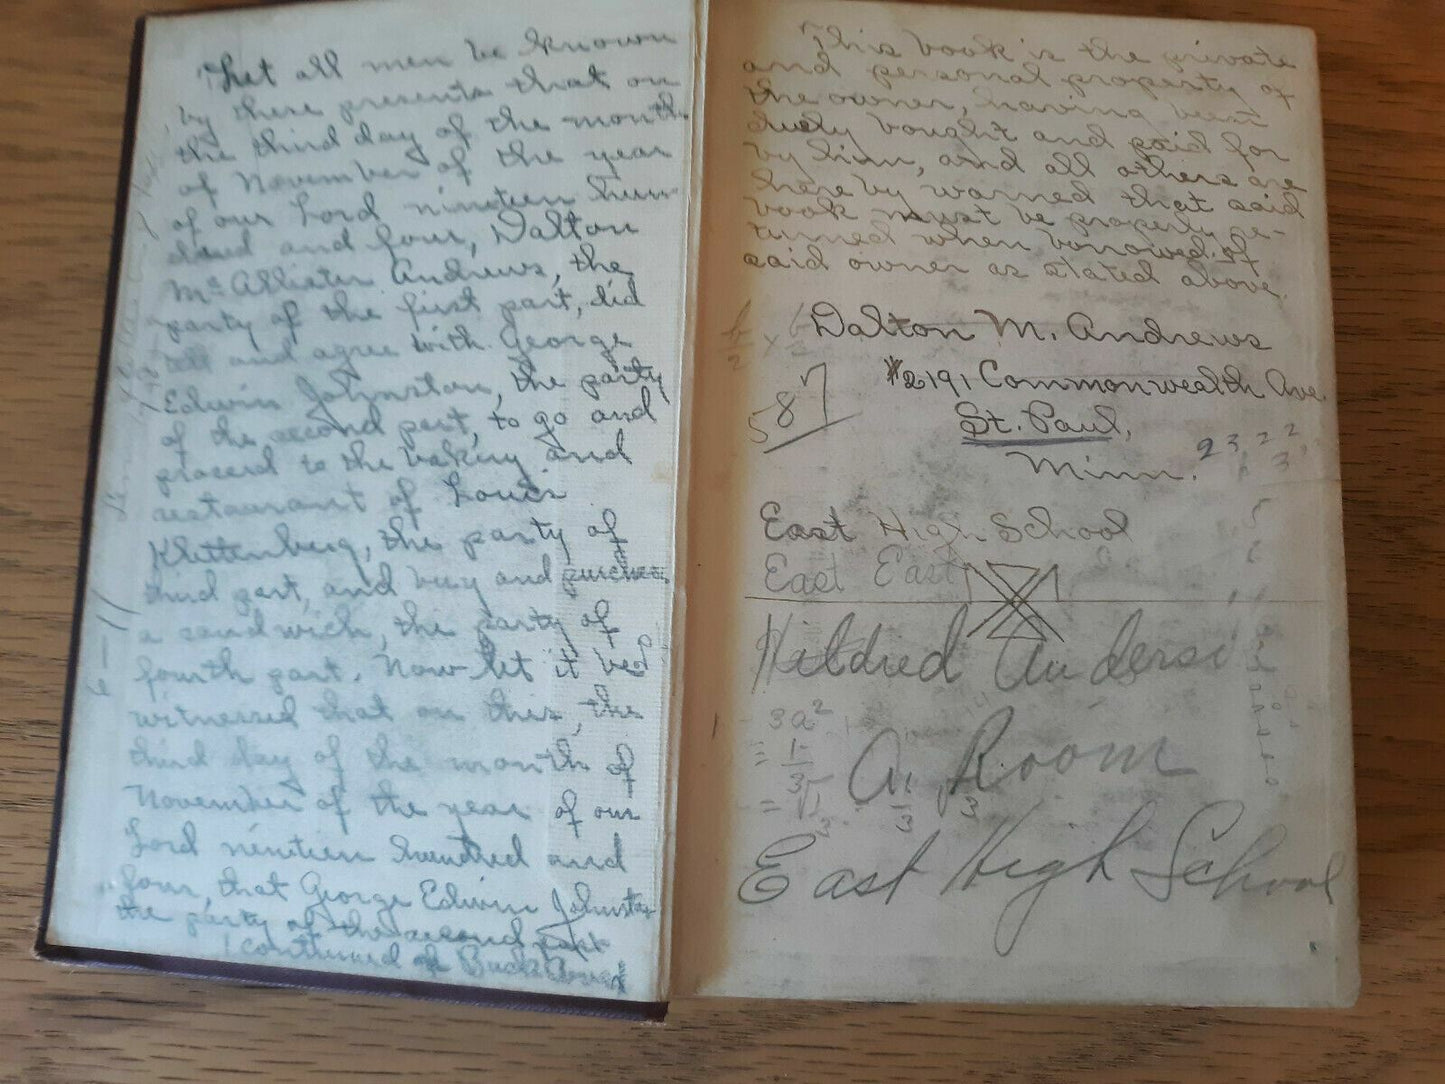 That all men be known
by these presents that on
the third day of the month
of November of the year
of our Lord nineteen hun
dred and four, Dalton
McAllister Andrews, the
party of the first part, did
and agree with George
Edwin Johnston, the party
of the second part, to go and
proceed to the bakery and
restaurant of Louis
Klittenberg, the party of
third part, and buy and
a sandwich, the party of
fourth part. Now let it be
witnessed that on this, the
third day of the month of
November of the year of our
Lord nineteen hundred and
four, that George Edwin Johnston
the party of the second part
(continued on Back Cover)
This book is the private
and personal property of
the owner, having been
duly bought and paid for
by him, and all others are
hereby warned that said
book must be properly re-
turned when borrowed of
said owner as stated above.
Dalton M. Andrews
#2191 Commonwealth Ave.
St. Paul,
Minn.
587
East High School
East East
Hildred Andersi
3a²
A. Room
East High School